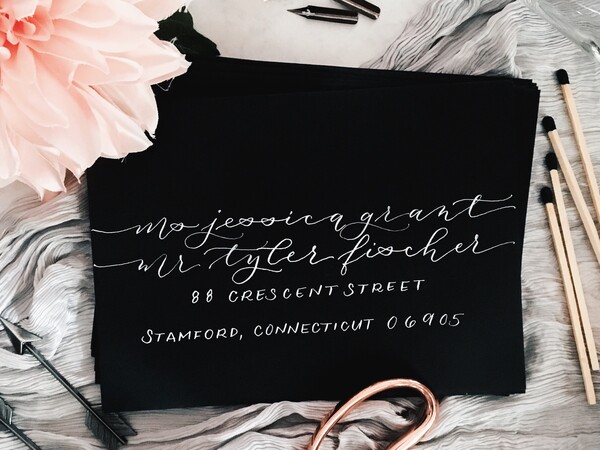 ms jessica grant
mr tyler fischer
88 CRESCENT STREET
STAMFORD, CONNECTICUT 06905